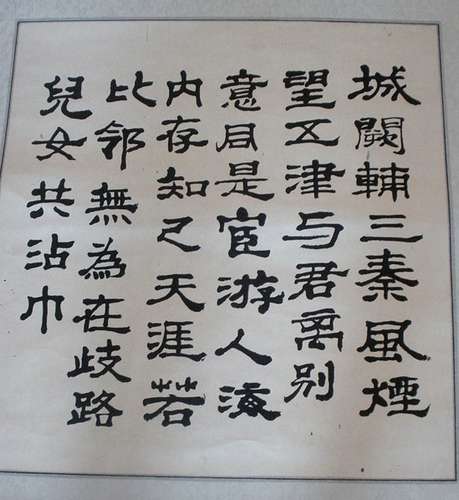 城闕輔三秦風煙
望五津与君离别
意同是宦游人海
内存知己天涯若
比邻無為在歧路
兒女共沾巾